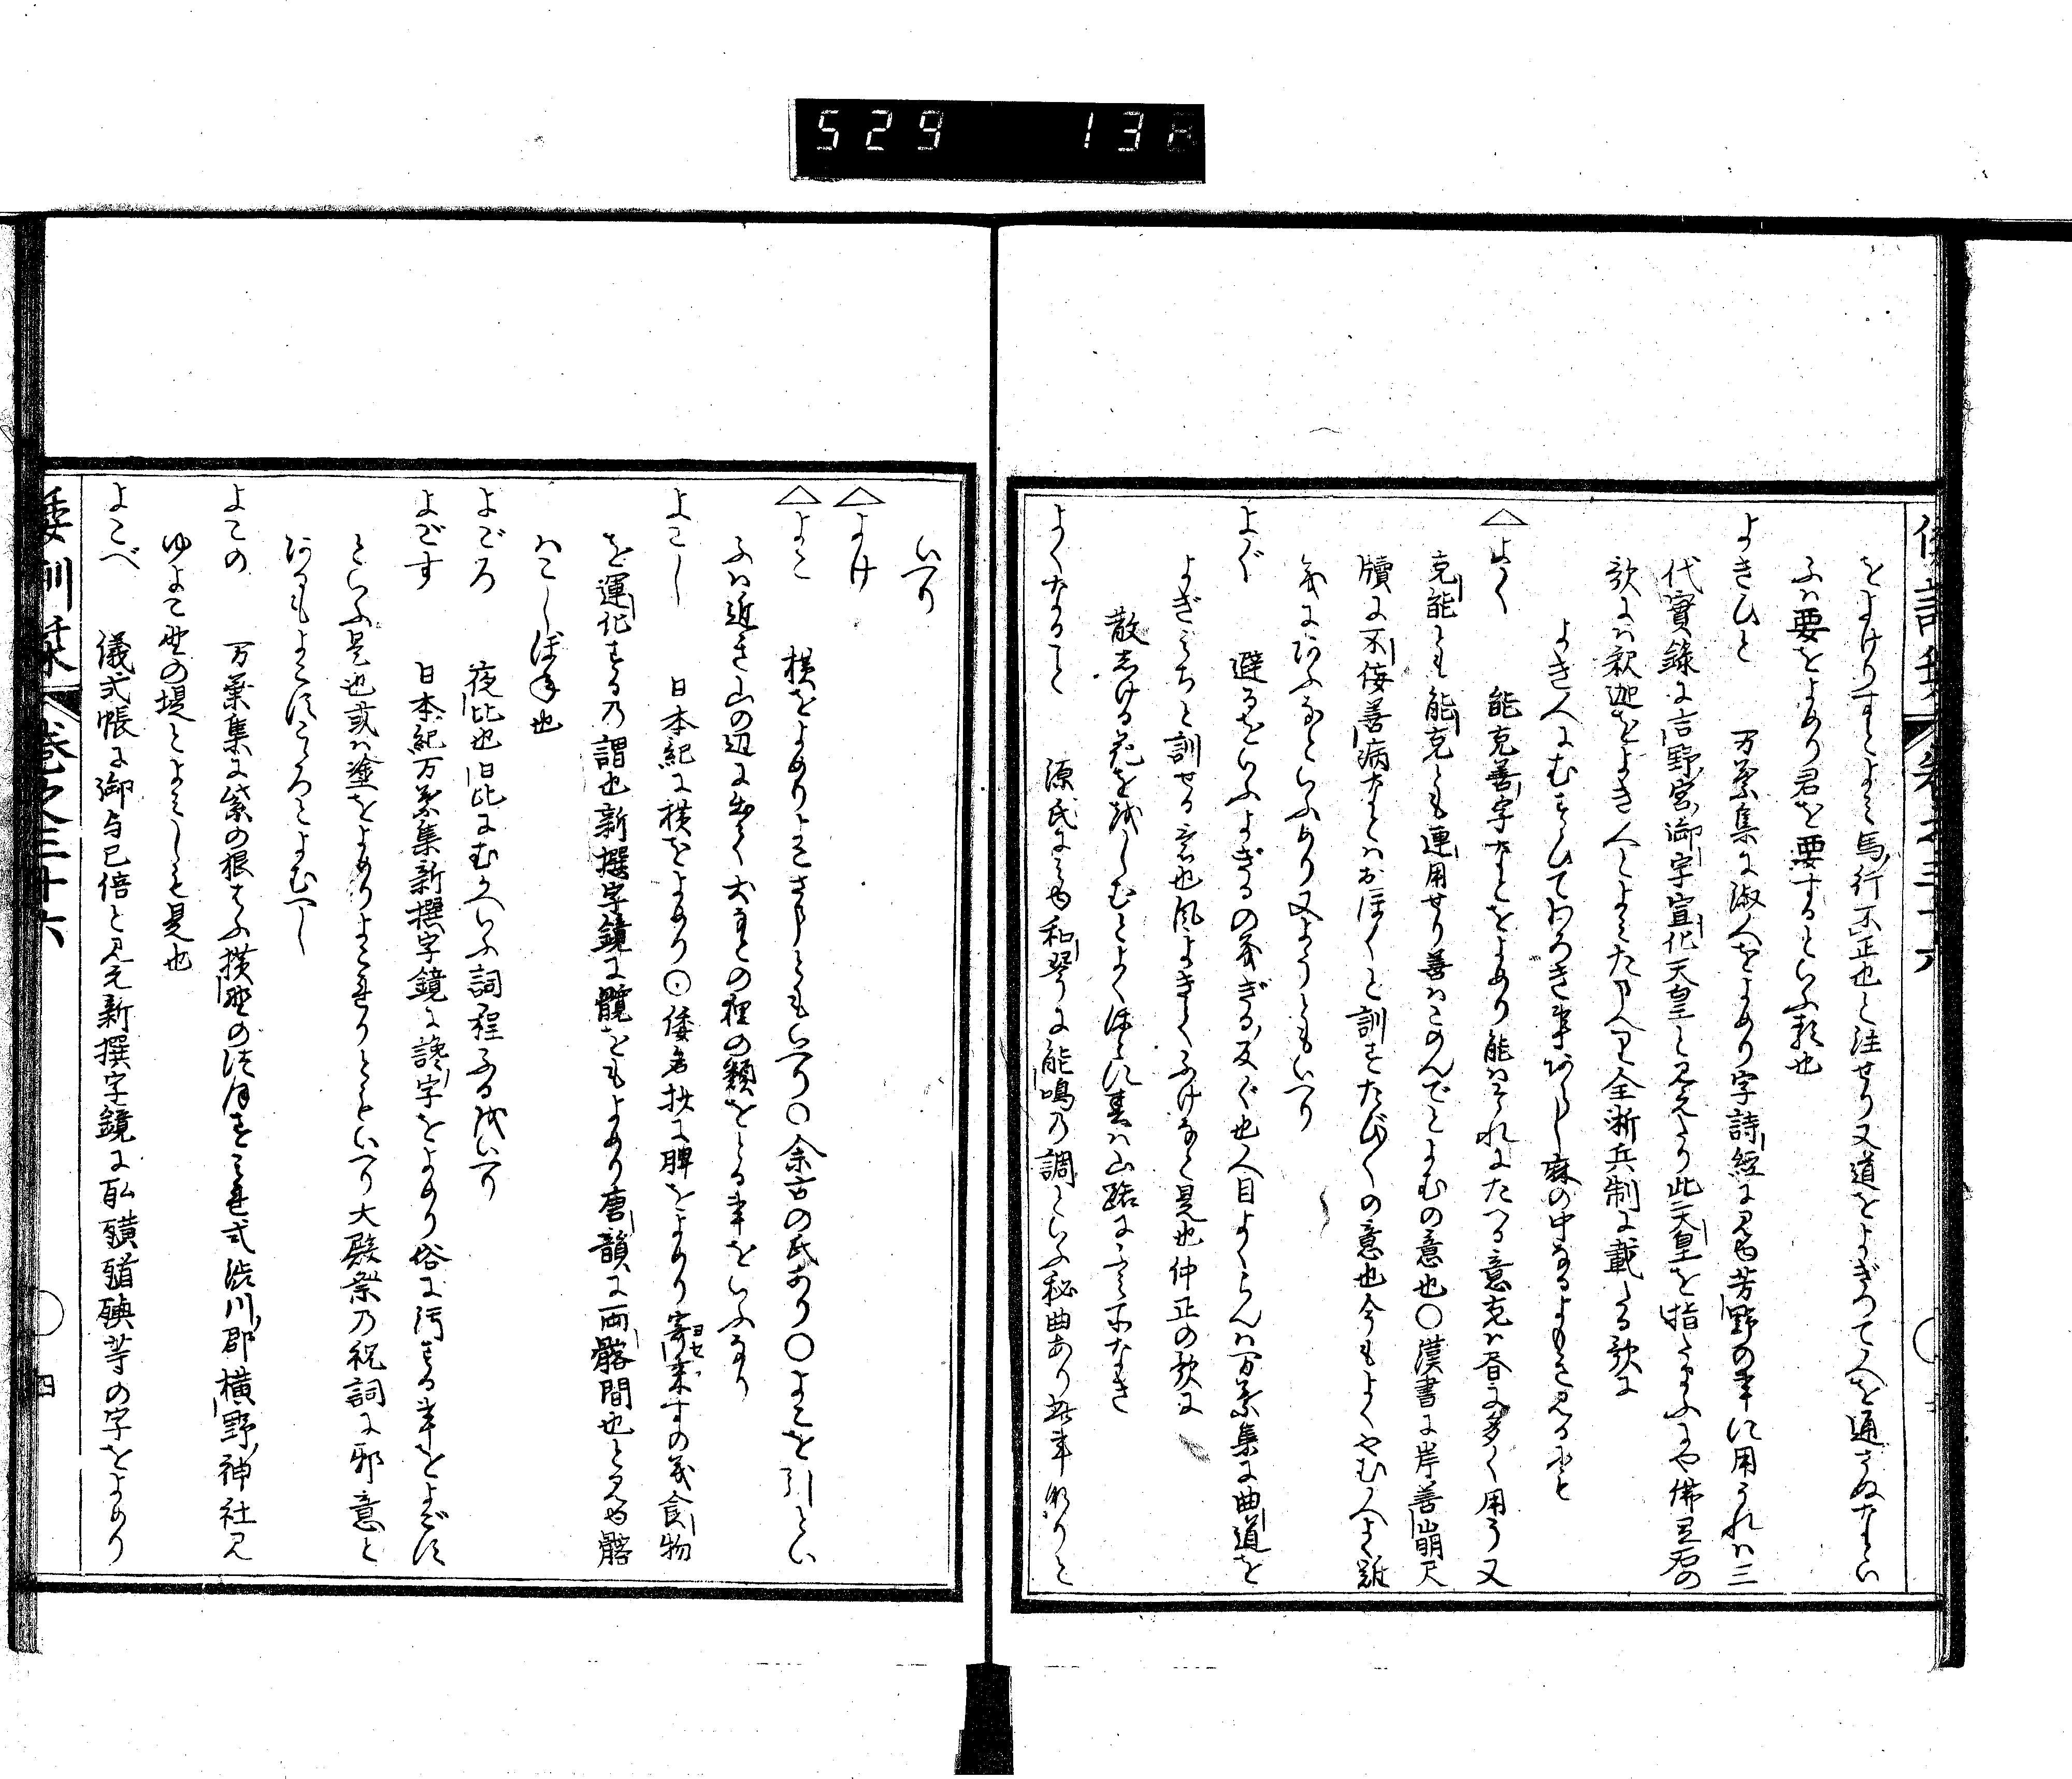 529 13
倭訓栞 卷之三十六
をよけりすとよみ馬行不正也と注せり又道をよぎつて人を通さぬなとい
ふハ要をよめり君を要するといふ類也
よきひと 万葉集に淑人をよめり字詩経に見ゆ芳野の事に用うれハ三
代實録に吉野宮御宇宣化天皇と見えたり此天皇を指たまふにや佛足石の
歌にハ釈迦をよき人とよみたまへり全浙兵制に載たる歌に
よき人にむすひてわろき事あらし麻の中なるよもきみるにも
△よく 能克善字なとをよめり能ハそれにたへる意克ハ春に多く用う又
克能とも能克とも連用せり善ハこのんでとよむの意也○漢書に岸善崩尺
牘に不佞善病なとハおほくと訓すたびたびの意也今もよくやむ人よく
あふなといふあり又ようともいへり
よぐ 避るをいふよぎるの義ぎる反ぐ也人目よくらんハ万葉集に曲道を
よぎみちと訓せる意也風よきてふけなと是也仲正の歌に
散しける花をしむとよくほとに春ハ山路にそなき
よくなること 源氏にみゆ和琴に能鳴乃調といふ秘曲あり此事なりと
いへり
△よけ
△よこ 横をよめりよこさまともいへり○余古の氏あり○よこを引とい
ふハ近き山の辺に出て犬なとの狸の類をとる事をいふなり
よこし 日本紀に横をよめり○倭名抄に脾をよめり寄来すの義食物
を運化する乃謂也新撰字鏡に髖をもよめり唐韻に両髂間也と見ゆ髂
ハこしぼね也
よごろ 夜比也日比にむかへいふ詞程ふるをいへり
よごす 日本紀万葉集新撰字鏡に讒字をよめり俗に汚する事をよごす
といふ是也或ハ塗をよめりよこせりともいへり大殿祭乃祝詞に邪意と
あるもよこすこころとよむへし
よこの 万葉集に紫の根はふ横野のつほすみれ式渋川郡横野神社見
ゆよこ野の堤とよみしも是也
よこべ 儀式帳に御与己倍と見え新撰字鏡に等の字をよめり
倭訓栞 卷之三十六 四